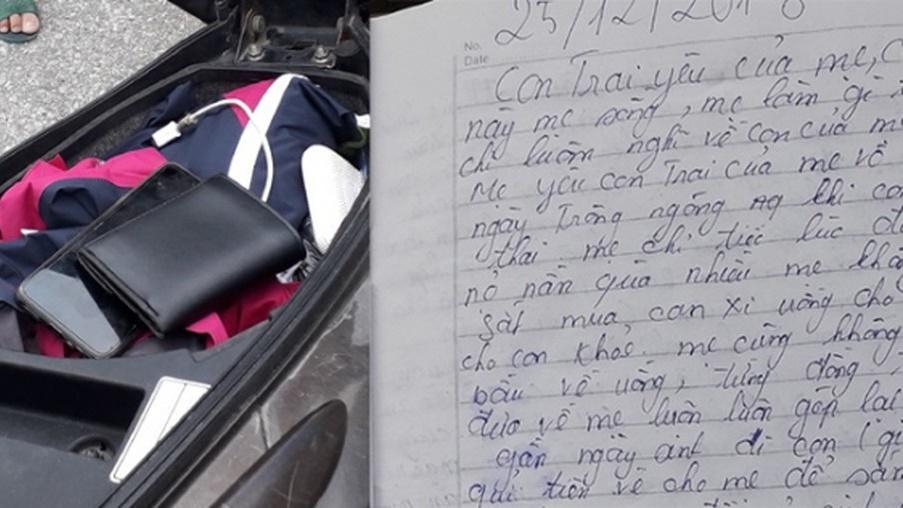 25/12/201
No.
Date
Con Trai yêu của mẹ,
này mẹ sống, mẹ làm gì
chỉ luôn nghĩ về con của
Mẹ yêu con Trai của mẹ vô
ngày Trông ngóng khi
thai mẹ chỉ tiếc lúc
nợ nần quá nhiều mẹ
sắt mua, can xi uống cho
cho con khoẻ. mẹ cũng không
bầu về uống, từng đồng
đưa về mẹ luôn luôn góp lại
gần ngày sinh đi con
gửi tiền về cho mẹ để